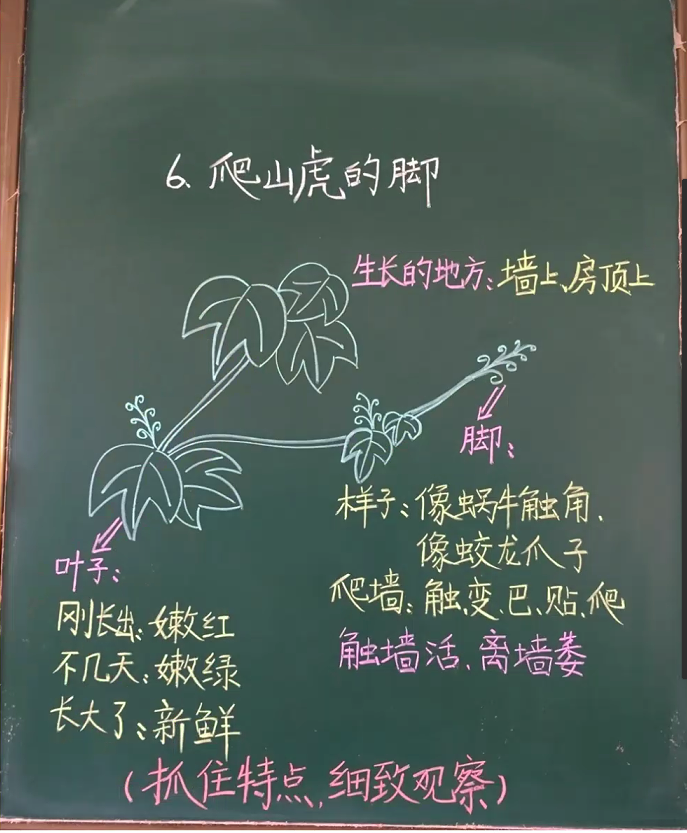 6. 爬山虎的脚
生长的地方:墙上、房顶上
脚:
样子:像蜗牛触角、
像蛟龙爪子
爬墙:触、变、巴、贴、爬
触墙活、离墙萎
叶子:
刚长出:嫩红
不几天:嫩绿
长大了:新鲜
(抓住特点,细致观察)